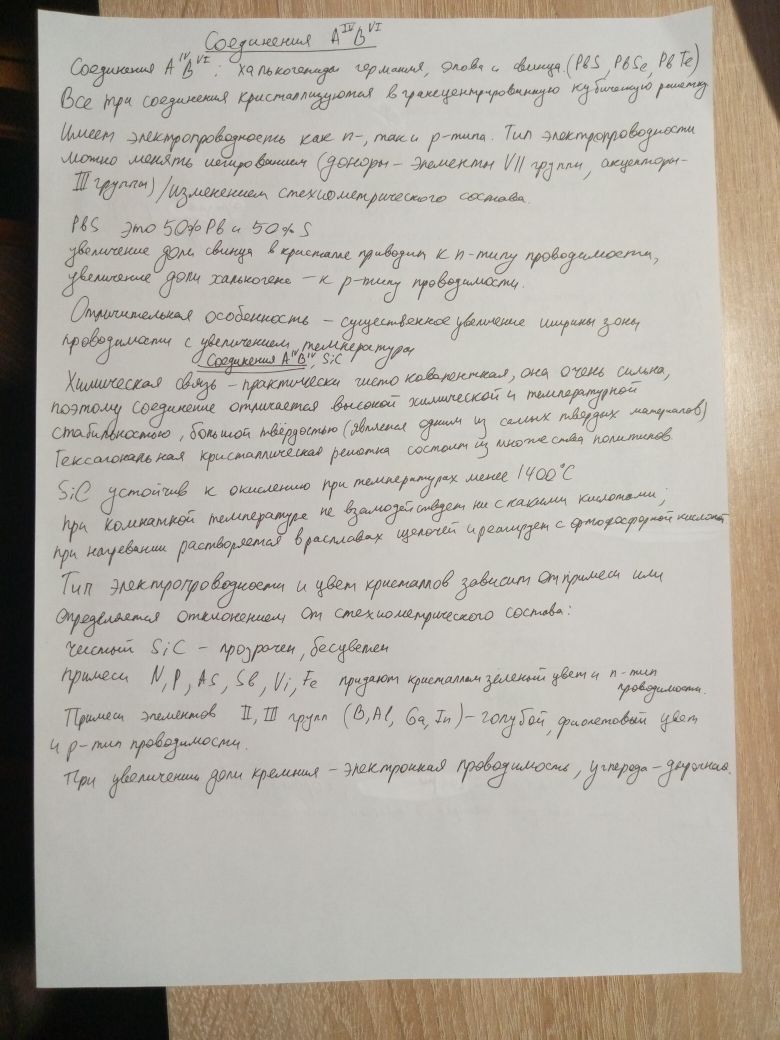 Соединения A^IV B^VI
Соединения A^IV B^VI: халькогениды германия, олова и свинца. (PbS, PbSe, PbTe)
Все три соединения кристаллизуются в гранецентрированную кубическую решетку
Имеет электропроводность как n-, так и p-типа. Тип электропроводности
можно менять легированием (доноры – элементы VII группы, акцепторы-
III группы) / изменением стехиометрического состава.
PbS это 50% Pb и 50% S
увеличение доли свинца в кристалле приводит к n-типу проводимости,
увеличение доли халькогена – к p-типу проводимости.
Отличительная особенность – существенное увеличение ширины зоны
проводимости с увеличением температуры
Соединения A^IV B^IV, SiC
Химическая связь – практически чисто ковалентная, она очень сильна,
поэтому соединение отличается высокой химической и температурной
стабильностью, большой твёрдостью (является одним из самых твёрдых материалов)
Гексагональная кристаллическая решетка состоит из множества политипов.
SiC устойчив к окислению при температурах менее 1400°C
при комнатной температуре не взаимодействует ни с какими кислотами;
при нагревании растворяется в расплавах щелочей и реагирует с ортофосфорной кислотой
Тип электропроводности и цвет кристаллов зависит от примеси или
определяется отклонением от стехиометрического состава:
чистый SiC – прозрачен, бесцветен
примеси N, P, As, Sb, Vi, Fe придают кристаллам зеленый цвет и n-тип
проводимости.
Примеси элементов II, III групп (B, Al, Ga, In) – голубой, фиолетовый цвет
и p-тип проводимости.
При увеличении доли кремния – электронная проводимость, углерода – дырочная.